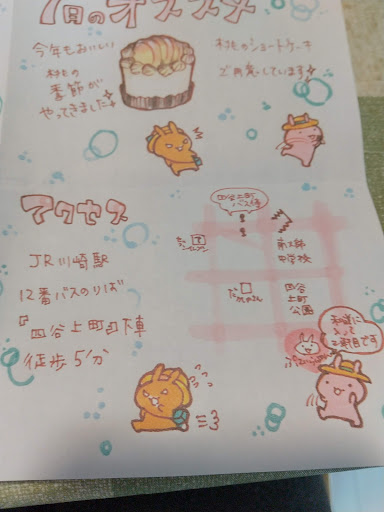 7月のオススメ
今年もおいしい
桃の
季節が
やってきました
桃のショートケーキ
ご用意しています
アクセス
四谷上町
バス停
JR川崎駅
12番バスのりば
『四谷上町』下車
徒歩5分
中学校
四谷
上町
公園
2軒目です